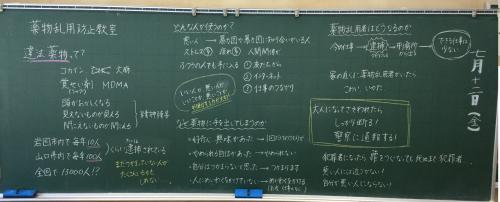 薬物乱用防止教室
違法薬物って?
コカイン
大麻
覚せい剤
MDMA
頭がおかしくなる
見えないものが見える
聞こえないものが聞こえる
岩国市内で毎年10人
山口県内で毎年100人
くらい逮捕されている
全国で13000人!?
まだつかまっていない人が
たくさんいるかも
しれない
どんな人が使うの?
悪い人
ストレス
人間関係
ふつうの人も手に入る
①友だちから
②インターネット
③仕事のつながり
なぜ薬物に手を出してしまうのか
・好奇心 興味があった
・やめられる自信があった→やめられない
・自分はつかまらないと思った→つかまります
・人にめいわくをかけていない→めいわくをかける
薬物乱用者はどうなるのか
今の仕事→逮捕→刑務所
できる仕事は
少ない
家の近くに薬物乱用者がいたら
こわい、いやだ
大人になってさそわれたら
しっかり断る!
警察に通報する!
犯罪者になったら罪をつぐなっても死ぬまで犯罪者…
悪い人には近づかない!
自分で悪い人にならない!
七月十二日(金)